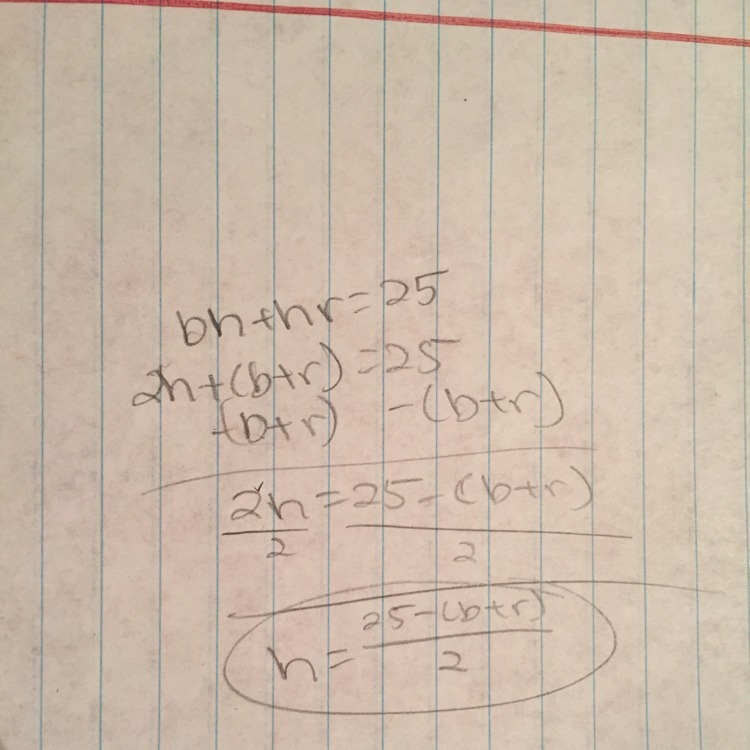 bh+hr=25
2h+(b+r)=25
-(b+r) -(b+r)
2h=25-(b+r)
2 2
h=25-(b+r)
2